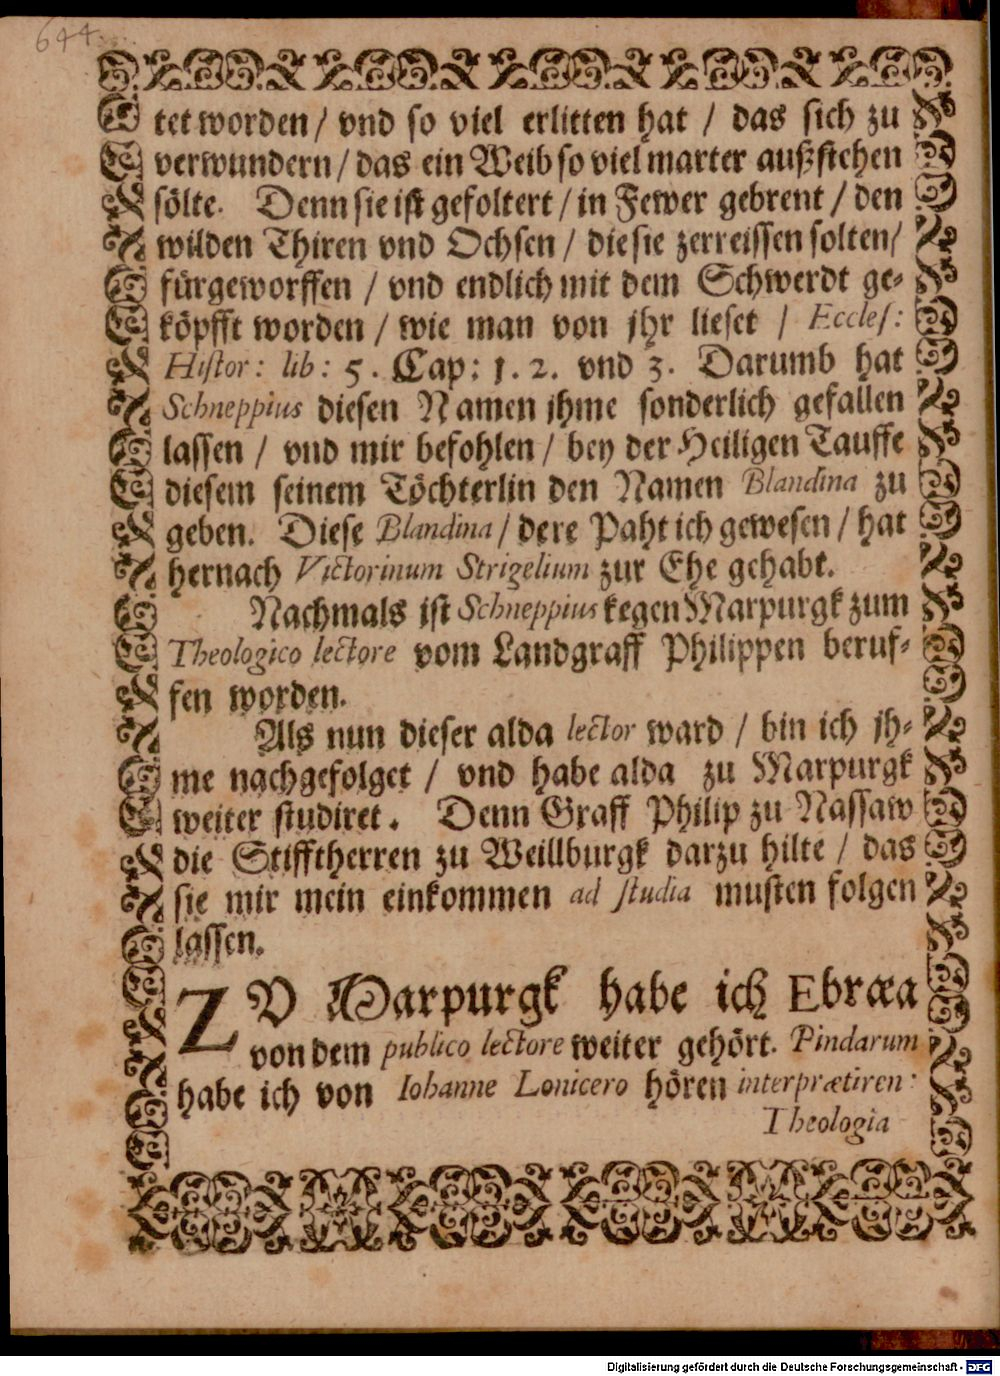 644.
tet worden / vnd so viel erlitten hat / das sich zu
verwundern / das ein Weib so viel marter außstehen
sölte. Denn sie ist gefoltert / in Fewer gebrent / den
wilden Thiren vnd Ochsen / die sie zerreissen solten /
fürgeworffen / vnd endlich mit dem Schwerdt ge-
köpfft worden / wie man von jhr lieset / Eccles:
Histor: lib: 5. Cap: 1. 2. vnd 3. Darumb hat
Schneppius diesen Namen jhme sonderlich gefallen
lassen / vnd mir befohlen / bey der Heiligen Tauffe
diesem seinem Töchterlin den Namen Blandina zu
geben. Diese Blandina / dere Paht ich gewesen / hat
hernach Victorinum Strigelium zur Ehe gehabt.
Nachmals ist Schneppius kegen Marpurgk zum
Theologico lectore vom Landgraff Philippen beruf-
fen worden.
Als nun dieser alda lector ward / bin ich jh-
me nachgefolget / vnd habe alda zu Marpurgk
weiter studiret. Denn Graff Philip zu Nassaw
die Stifftherren zu Weillburgk darzu hilte / das
sie mir mein einkommen ad studia musten folgen
lassen.
ZV Marpurgk habe ich Ebræa
von dem publico lectore weiter gehört. Pindarum
habe ich von Iohanne Lonicero hören interprætiren:
Theologia
Digitalisierung gefördert durch die Deutsche Forschungsgemeinschaft - DFG